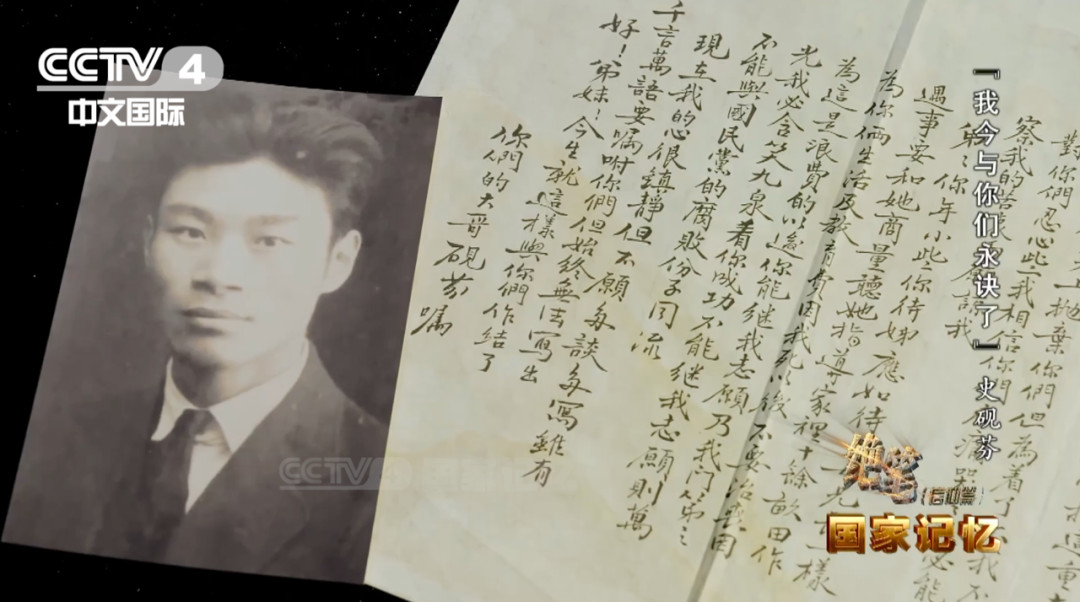 CCTV 4
中文国际
上拋棄你們但為着了
對你們忍心些我相信你們
察我的苦衷
弟弟你年小些你待姊應如待
遇事要和她商量聽她指導家裡十餘畝田作
為你倆生活及教育費因我死以後不要治喪因
為這是浪費的以後你能繼我志愿乃我門第之
光我必含笑九泉看你成功不能繼我志願則萬
不能與國民黨的腐敗份子同流
現在我的心很鎮靜但不願多談多寫雖有
千言萬語要嘱咐你們但始終無法寫出
好！弟妹！今生就這樣與你們作結了
你們的大哥硯芬嘱
『我今与你们永诀了』 史砚芬
绝笔
（信仰篇）
国家记忆
CCTV